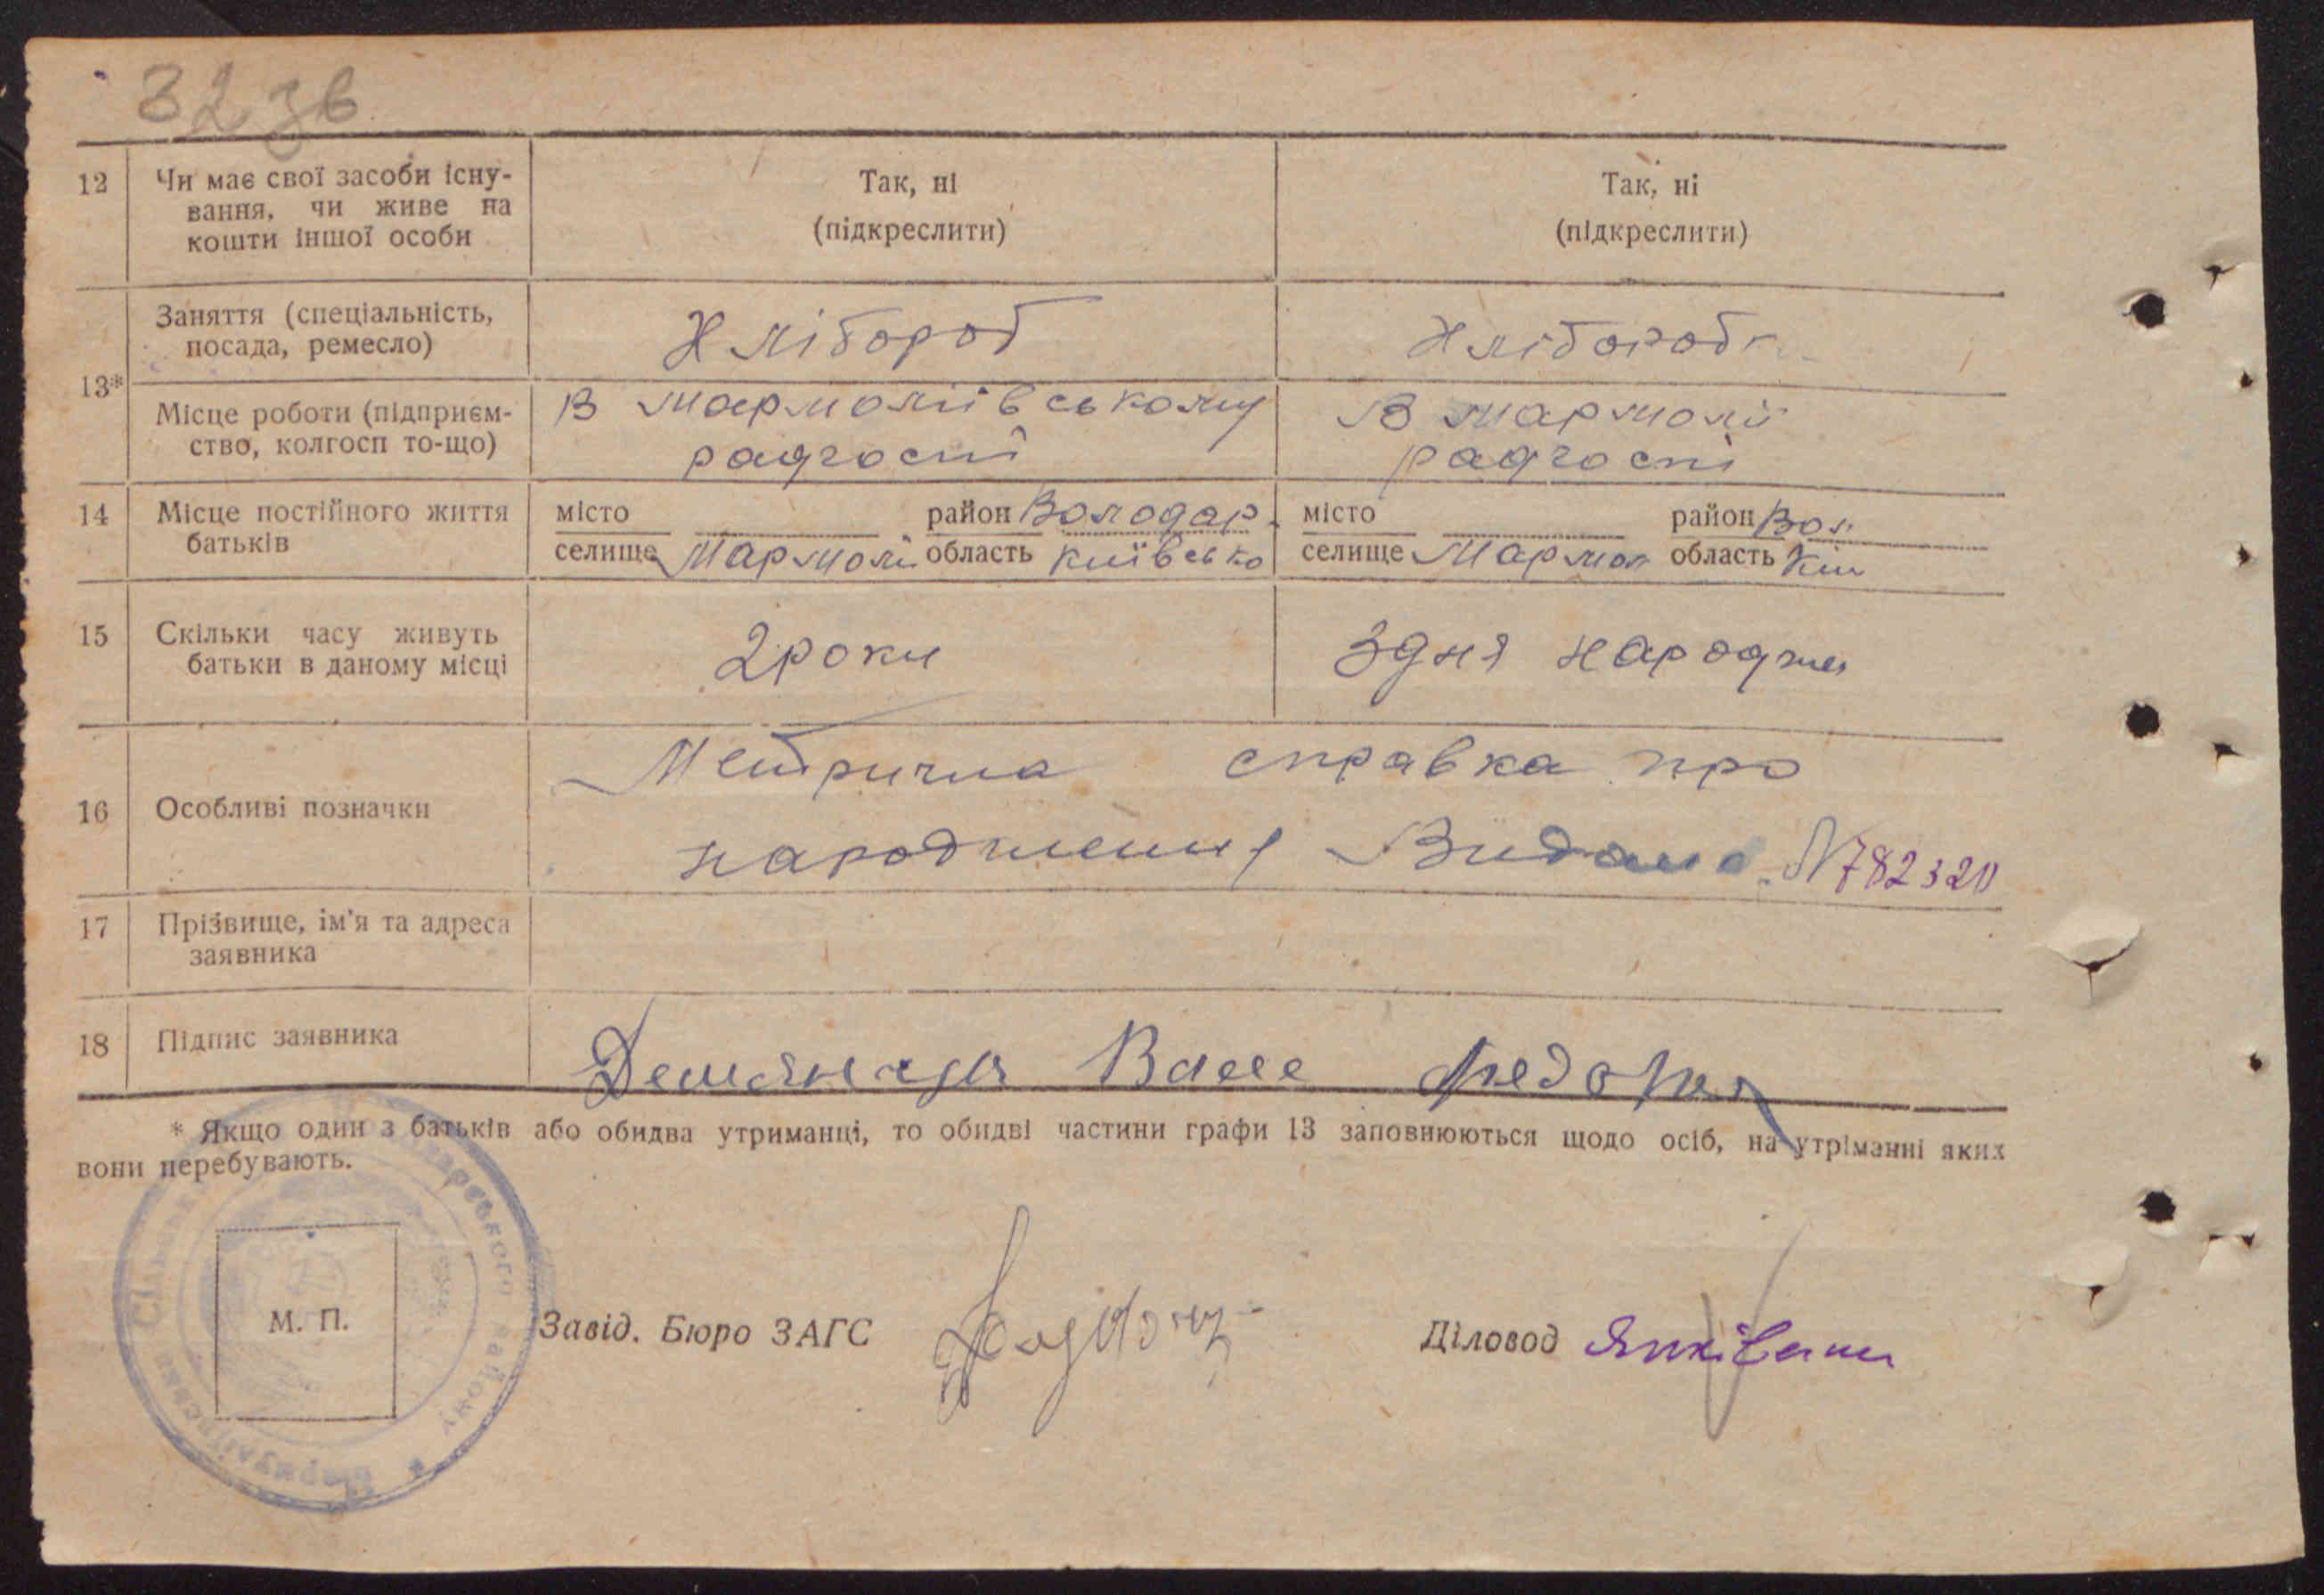 32 зв
12 Чи має свої засоби існу- Так, ні Так, ні
вання, чи живе на (підкреслити) (підкреслити)
кошти іншої особи
Заняття (спеціальність, Хлібороб Хлібороб
посада, ремесло)
13*
Місце роботи (підприєм- В Мармоліївському В Мармолії
ство, колгосп то-що) радгоспі радгоспі
14 Місце постійного життя місто район Володар. місто район Вол
батьків селище Мармолі область Київсько селище Мармол область Київ
15 Скільки часу живуть 2 роки З дня народже
батьки в даному місці
Метрична справка про
16 Особливі позначки
народження Видана N 782320
17 Прізвище, ім'я та адреса
заявника
18 Підпис заявника
* Якщо один з батьків або обидва утриманці, то обидві частини графи 13 заповнюються щодо осіб, на утріманні яких
вони перебувають.
М. П. Завід. Бюро ЗАГС Діловод